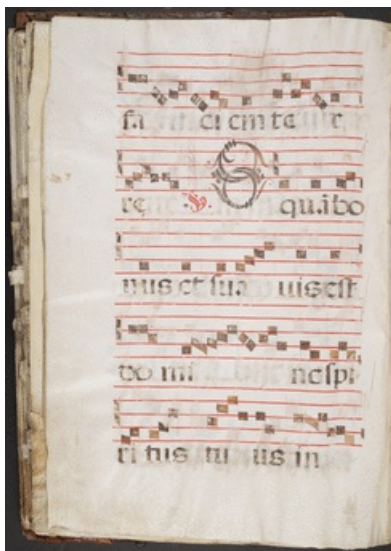 fa ci em te r
re ℣. O quā bo
nus et sua uis est
do mi ne spi
ri tus tu us in